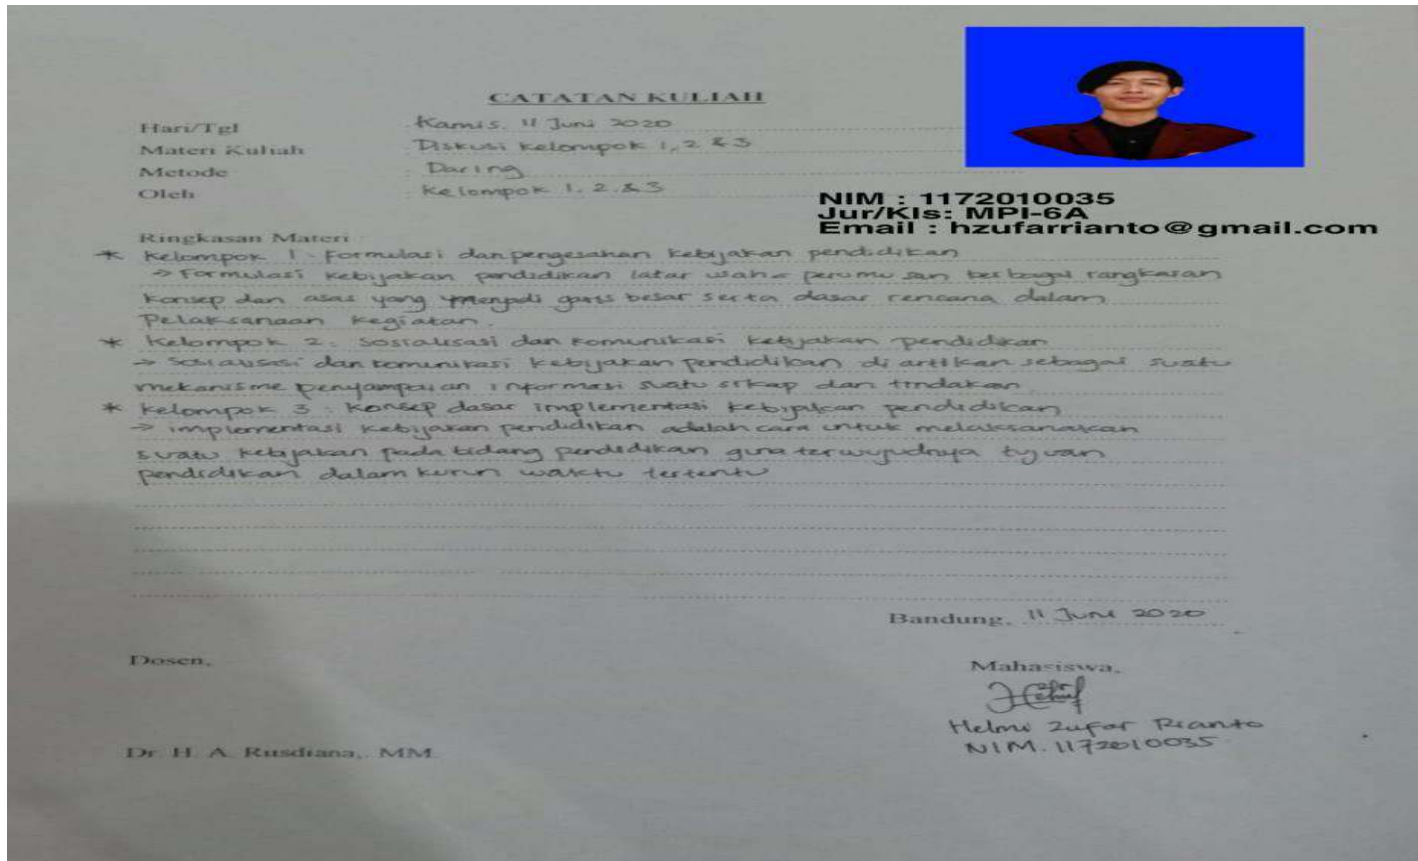 CATATAN KULIAH
Hari/Tgl : Kamis, 11 Juni 2020
Materi Kuliah : Diskusi Kelompok 1, 2 & 3
Metode : Daring
Oleh : Kelompok 1, 2 & 3
NIM : 1172010035
Jur/Kls: MPI-6A
Email : hzufarrianto@gmail.com
Ringkasan Materi :
* Kelompok 1 : Formulasi dan pengesahan kebijakan pendidikan
→ Formulasi kebijakan pendidikan latar perumusan berbagai rangkaian
konsep dan asas yang menjadi garis besar serta dasar rencana dalam
Pelaksanaan kegiatan.
* Kelompok 2 : Sosialisasi dan komunikasi kebijakan pendidikan
→ Sosialisasi dan komunikasi kebijakan pendidikan di artikan sebagai suatu
mekanisme penyampaian informasi suatu sikap dan tindakan
* Kelompok 3 : Konsep dasar implementasi kebijakan pendidikan
→ implementasi kebijakan pendidikan adalah cara untuk melaksanakan
suatu kebijakan pada bidang pendidikan guna terwujudnya tujuan
pendidikan dalam kurun waktu tertentu
Bandung, 11 Juni 2020
Dosen,
Mahasiswa,
Helmi Zufar Rianto
NIM. 1172010035
Dr. H. A. Rusdiana,. MM.